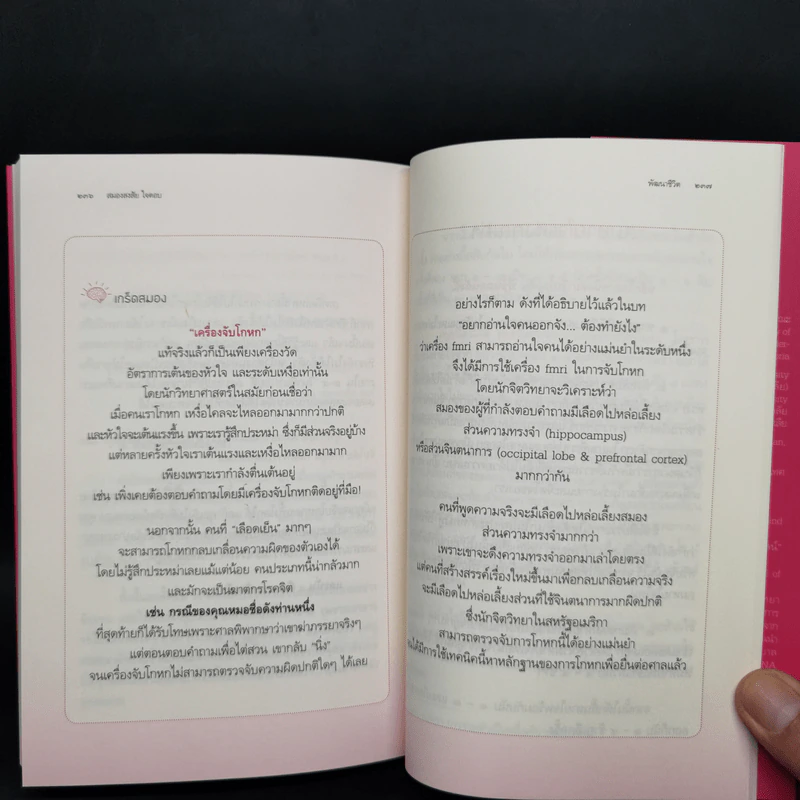 ๒๓๖ สมองสงสัย ใจตอบ
เกร็ดสมอง
"เครื่องจับโกหก"
แท้จริงแล้วก็เป็นเพียงเครื่องวัด
อัตราการเต้นของหัวใจ และระดับเหงื่อเท่านั้น
โดยนักวิทยาศาสตร์ในสมัยก่อนเชื่อว่า
เมื่อคนเราโกหก เหงื่อไคลจะไหลออกมามากกว่าปกติ
และหัวใจจะเต้นแรงขึ้น เพราะเรารู้สึกประหม่า ซึ่งก็มีส่วนจริงอยู่บ้าง
แต่หลายครั้งหัวใจเราเต้นแรงและเหงื่อไหลออกมามาก
เพียงเพราะเรากำลังตื่นเต้นอยู่
เช่น เพิ่งเคยต้องตอบคำถามโดยมีเครื่องจับโกหกติดอยู่ที่มือ!
นอกจากนั้น คนที่ "เลือดเย็น" มากๆ
จะสามารถโกหกกลบเกลื่อนความผิดของตัวเองได้
โดยไม่รู้สึกประหม่าเลยแม้แต่น้อย คนประเภทนี้น่ากลัวมาก
และมักจะเป็นฆาตกรโรคจิต
เช่น กรณีของคุณหมอชื่อดังท่านหนึ่ง
ที่สุดท้ายก็ได้รับโทษเพราะศาลพิพากษาว่าเขาฆ่าภรรยาจริงๆ
แต่ตอนตอบคำถามเพื่อไต่สวน เขากลับ "นิ่ง"
จนเครื่องจับโกหกไม่สามารถตรวจจับความผิดปกติใดๆ ได้เลย
พัฒนาชีวิต ๒๓๗
อย่างไรก็ตาม ดังที่ได้อธิบายไว้แล้วในบท
"อยากอ่านใจคนออกจัง... ต้องทำยังไง"
ว่าเครื่อง fmri สามารถอ่านใจคนได้อย่างแม่นยำในระดับหนึ่ง
จึงได้มีการใช้เครื่อง fmri ในการจับโกหก
โดยนักจิตวิทยาจะวิเคราะห์ว่า
สมองของผู้ที่กำลังตอบคำถามมีเลือดไปหล่อเลี้ยง
ส่วนความทรงจำ (hippocampus)
หรือส่วนจินตนาการ (occipital lobe & prefrontal cortex)
มากกว่ากัน
คนที่พูดความจริงจะมีเลือดไปหล่อเลี้ยงสมอง
ส่วนความทรงจำมากกว่า
เพราะเขาจะดึงความทรงจำออกมาเล่าโดยตรง
แต่คนที่สร้างสรรค์เรื่องใหม่ขึ้นมาเพื่อกลบเกลื่อนความจริง
จะมีเลือดไปหล่อเลี้ยงส่วนที่ใช้จินตนาการมากผิดปกติ
ซึ่งนักจิตวิทยาในสหรัฐอเมริกา
สามารถตรวจจับการโกหกนี้ได้อย่างแม่นยำ
ได้มีการใช้เทคนิคนี้หาหลักฐานของการโกหกเพื่อยื่นต่อศาลแล้ว